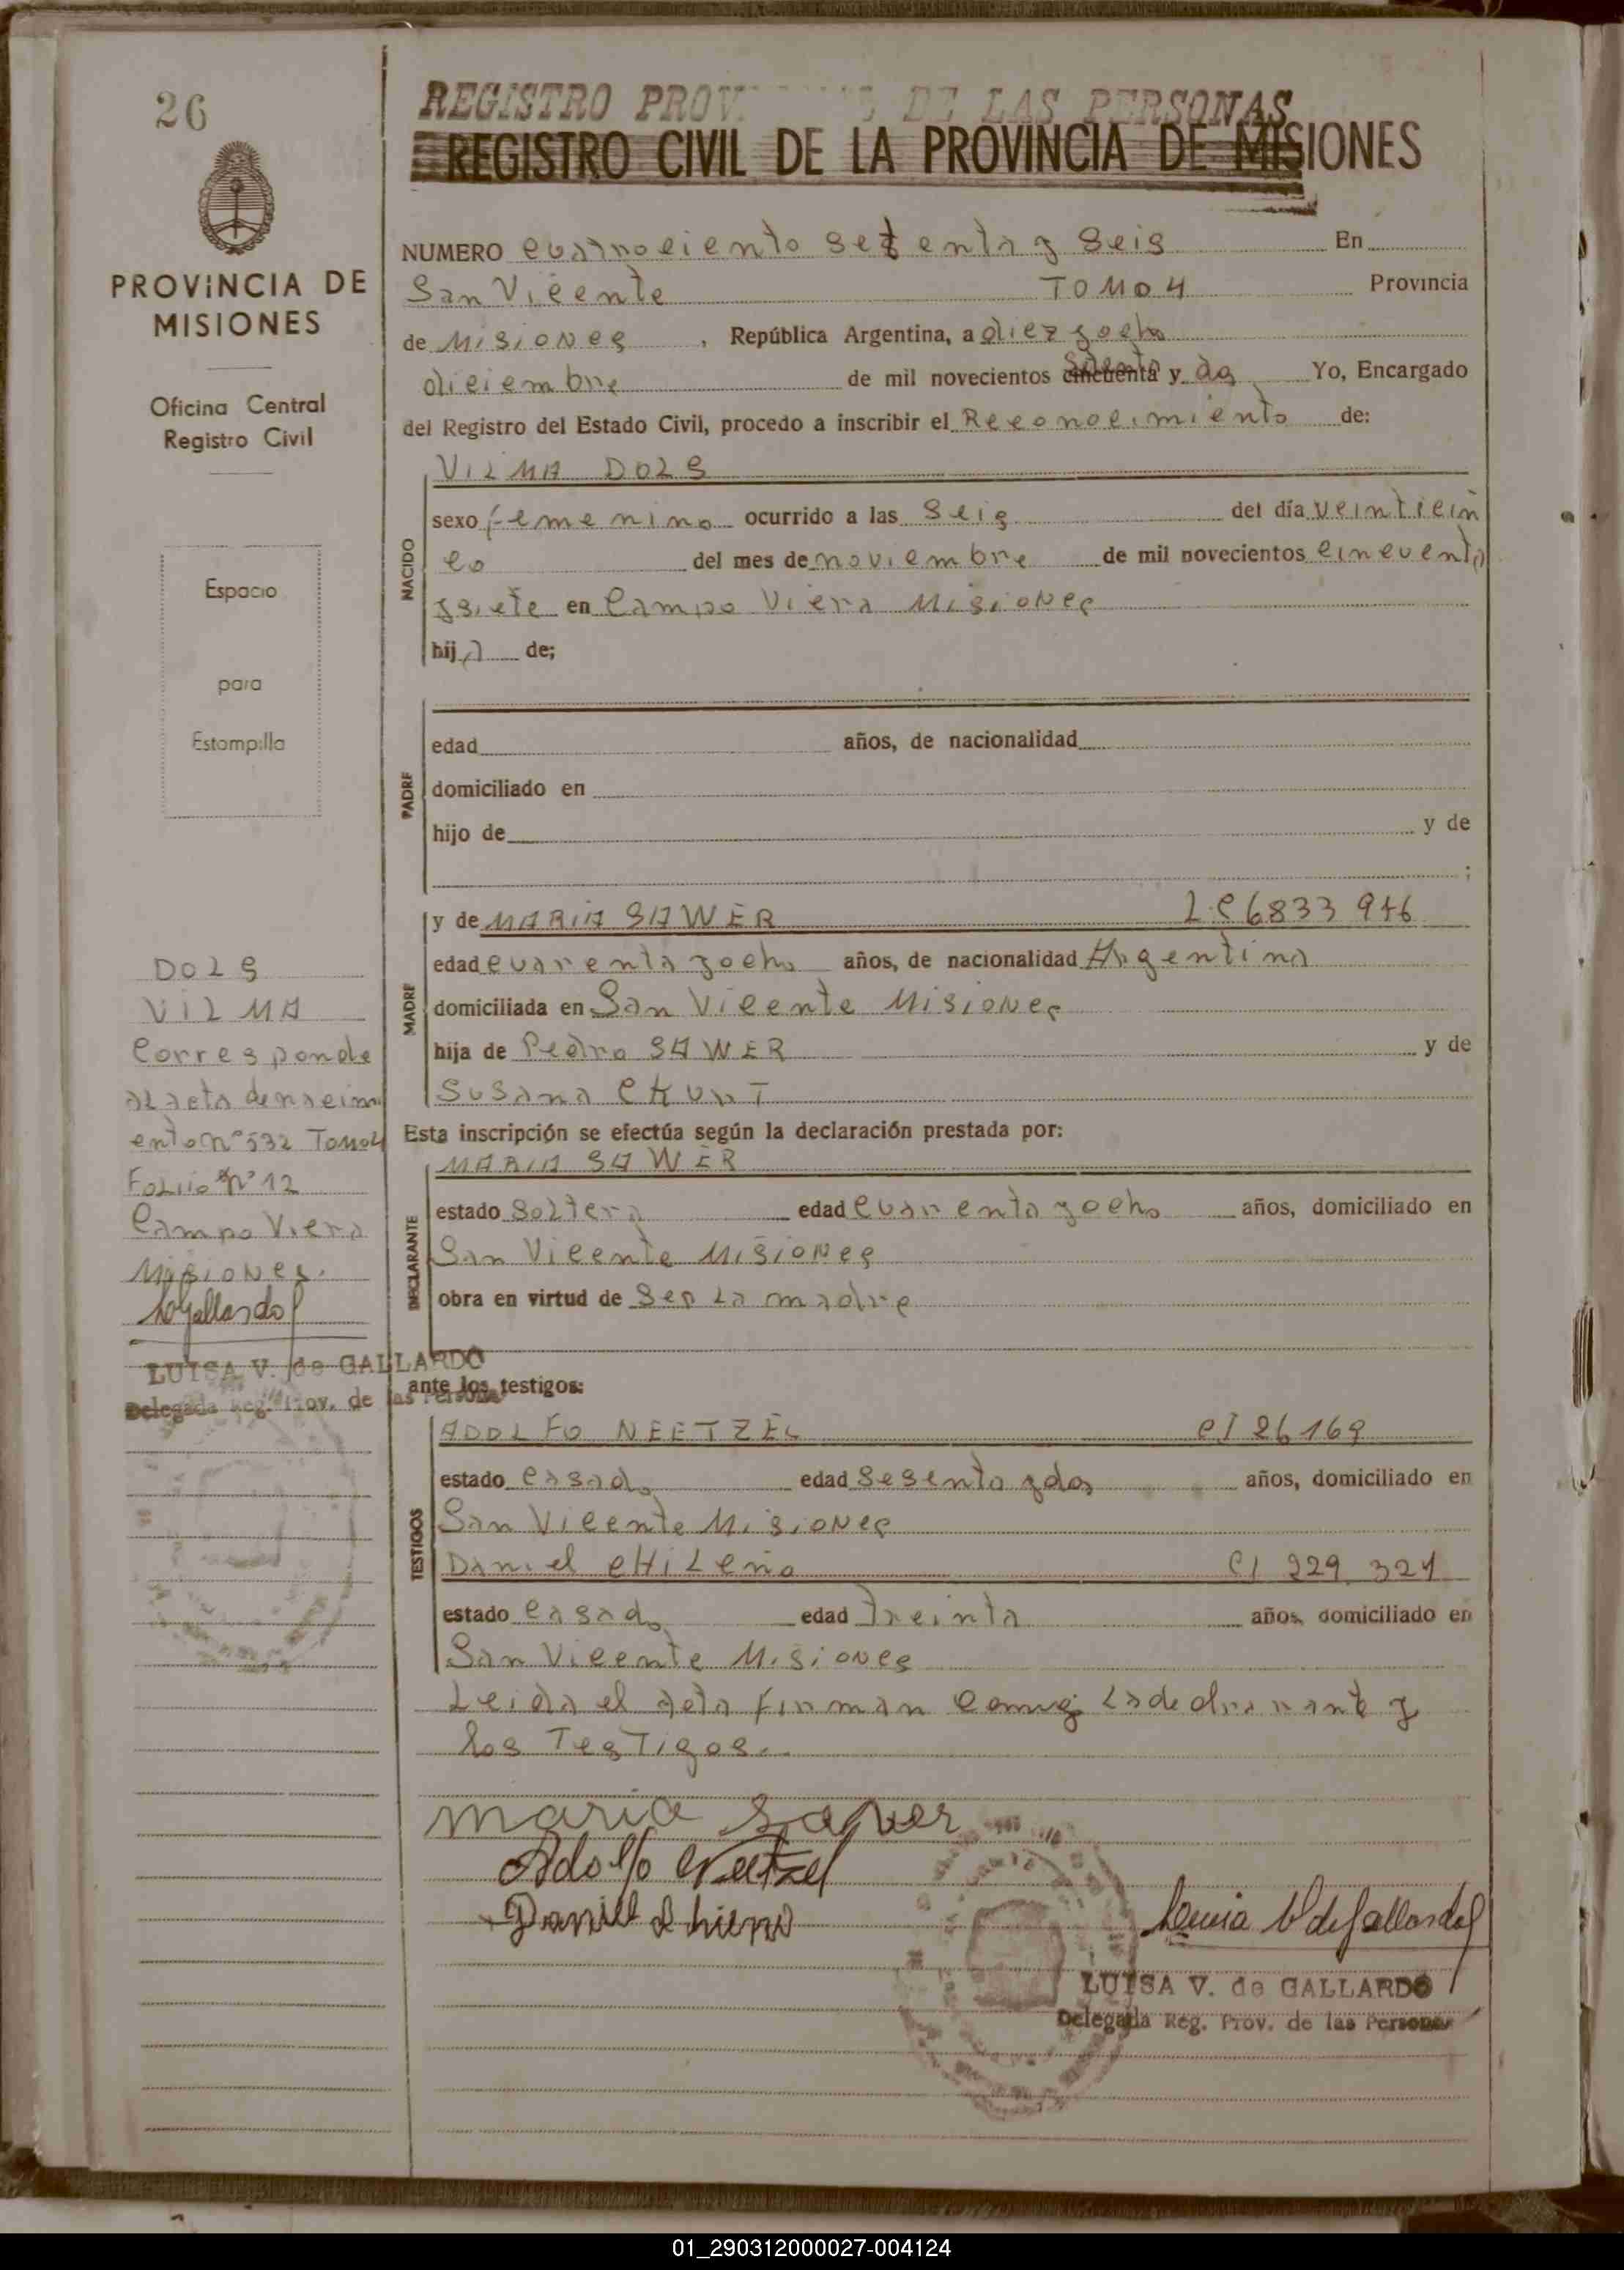 26
PROVINCIA DE
MISIONES
Oficina Central
Registro Civil
Espacio
para
Estampilla
DOLS
VILMA
Corresponde
al acta de nacimi
ento nº 532 Tomo 4
Folio Nº 12
Campo Viera
Misiones.
LUISA V. de GALLARDO
Delegada Reg. Prov. de las Personas
REGISTRO PROV DE LAS PERSONAS
REGISTRO CIVIL DE LA PROVINCIA DE MISIONES
NUMERO cuatrociento setenta y seis En
San Vicente TOMO 4 Provincia
de Misiones, República Argentina, a diez y ocho
diciembre de mil novecientos cincuenta setenta y dos Yo, Encargado
del Registro del Estado Civil, procedo a inscribir el Reconocimiento de:
VILMA DOLS
NACIDO
sexo femenino ocurrido a las seis del día veinticin
co del mes de noviembre de mil novecientos cincuenta
y siete en Campo Viera Misiones
hija de;
PADRE
edad años, de nacionalidad
domiciliado en
hijo de y de
;
MADRE
y de MARIA SAWER LC 6833946
edad cuarenta y ocho años, de nacionalidad Argentina
domiciliada en San Vicente Misiones
hija de Pedro SAWER y de
Susana
Esta inscripción se efectúa según la declaración prestada por:
DECLARANTE
MARIA SAWER
estado soltera edad cuarenta y ocho años, domiciliado en
San Vicente Misiones
obra en virtud de ser la madre
ante los testigos:
TESTIGOS
ADOLFO NEETZEL CI 26169
estado casado edad sesenta y dos años, domiciliado en
San Vicente Misiones
Daniel CHILENO CI 229.321
estado casado edad Treinta años, domiciliado en
San Vicente Misiones
Leida el acta firman conmigo la declarante y
los Testigos.
maria saver
Adolfo Neetzel
Luisa V de Gallardo
LUISA V. de GALLARDO
Delegada Reg. Prov. de las Personas
01_290312000027-004124